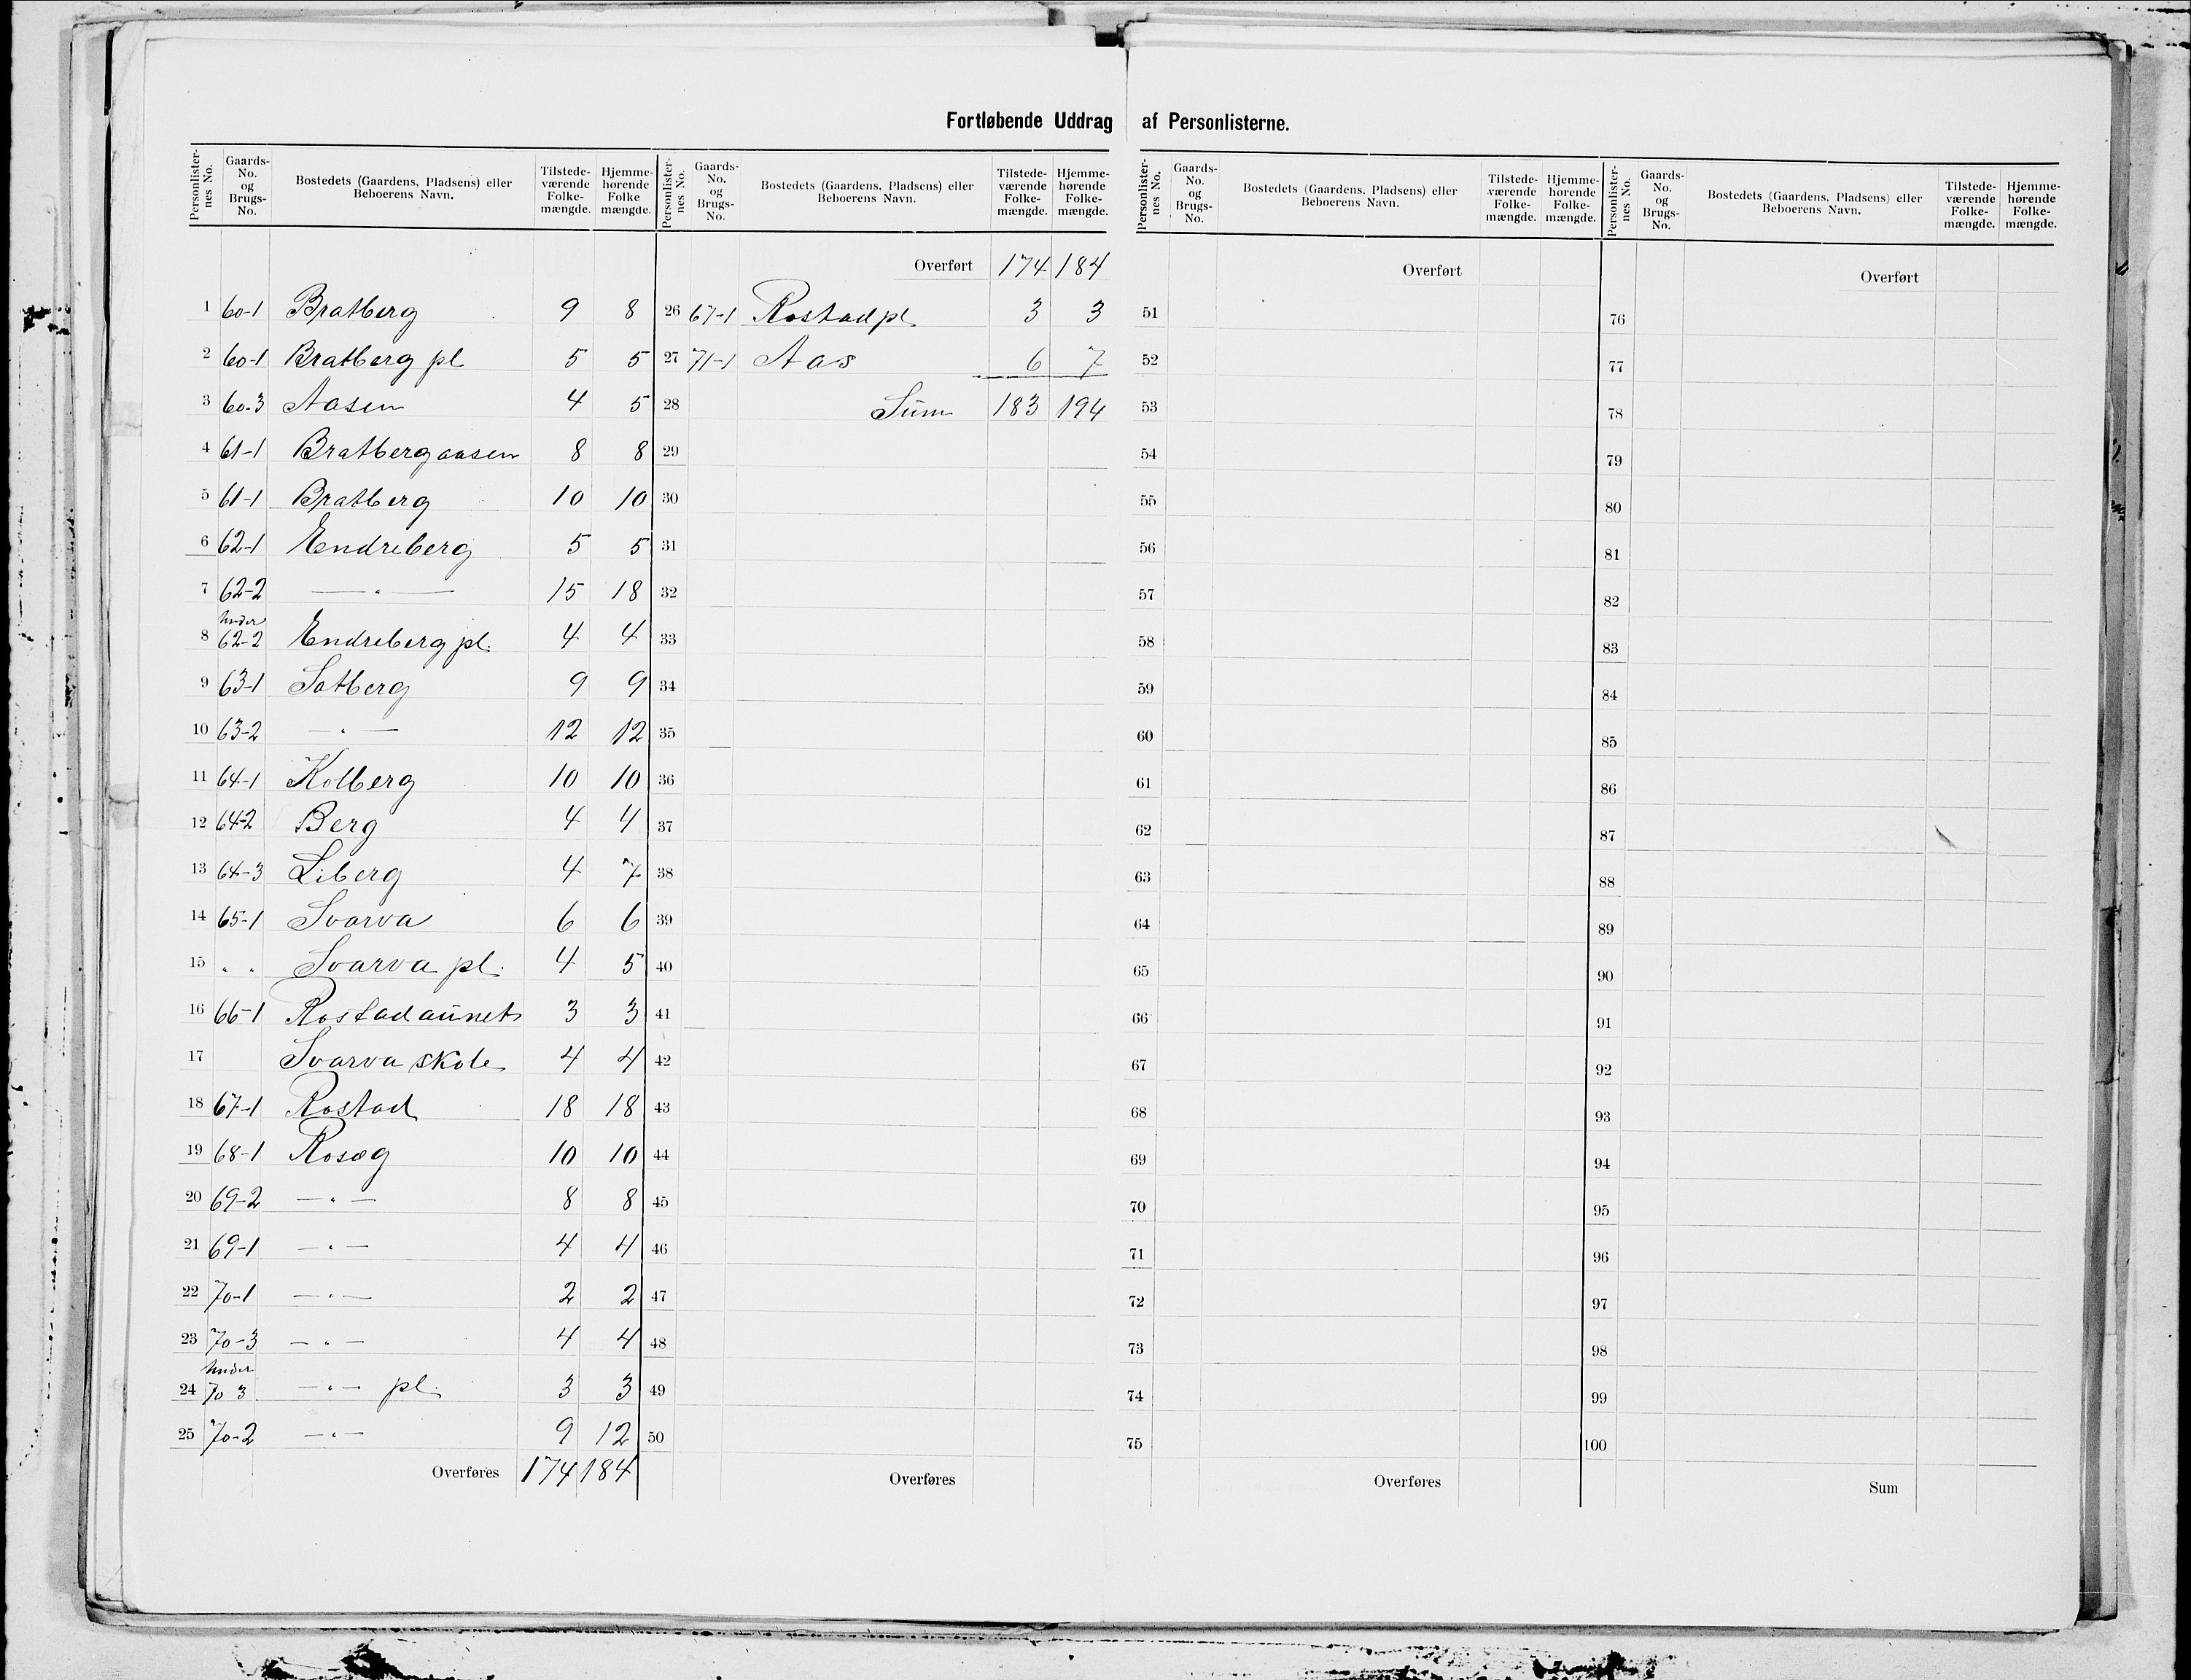 Fortløbende Uddrag af Personlisterne.
Personlisternes No. Gaards-No. og Brugs-No. Bostedets (Gaardens, Pladsens) eller Beboerens Navn. Tilstedeværende Folkemængde. Hjemmehørende Folke mængde.
1 60-1 Bratberg 9 8
2 60-1 Bratberg pl 5 5
3 60-3 Aasen 4 5
4 61-1 Bratbergaasen 8 8
5 61-1 Bratberg 10 10
6 62-1 Endreberg 5 5
7 62-2 — " — 15 18
8 Under 62-2 Endreberg pl. 4 4
9 63-1 Satberg 9 9
10 63-2 — " — 12 12
11 64-1 Kolberg 10 10
12 64-2 Berg 4 4
13 64-3 Liberg 4 7
14 65-1 Svarva 6 6
15 " " Svarva pl. 4 5
16 66-1 Rostadaunet 3 3
17 Svarva skole 4 4
18 67-1 Rostad 18 18
19 68-1 Rosæg 10 10
20 69-2 — " — 8 8
21 69-1 — " — 4 4
22 70-1 — " — 2 2
23 70-3 — " — 4 4
24 Under 70 3 — " — pl. 3 3
25 70-2 — " — 9 12
Overføres 174 184
Personlisternes No. Gaards-No. og Brugs-No. Bostedets (Gaardens, Pladsens) eller Beboerens Navn. Tilstedeværende Folkemængde. Hjemmehørende Folkemængde.
Overført 174 184
26 67-1 Rostad pl. 3 3
27 71-1 Aas 6 7
28 Sum 183 194
29
30
31
32
33
34
35
36
37
38
39
40
41
42
43
44
45
46
47
48
49
50
Overføres
Personlisternes No. Gaards-No. og Brugs-No. Bostedets (Gaardens, Pladsens) eller Beboerens Navn. Tilstedeværende Folkemængde. Hjemmehørende Folkemængde.
Overført
51
52
53
54
55
56
57
58
59
60
61
62
63
64
65
66
67
68
69
70
71
72
73
74
75
Overføres
Personlisternes No. Gaards-No. og Brugs-No. Bostedets (Gaardens, Pladsens) eller Beboerens Navn. Tilstedeværende Folkemængde. Hjemmehørende Folkemængde.
Overført
76
77
78
79
80
81
82
83
84
85
86
87
88
89
90
91
92
93
94
95
96
97
98
99
100
Sum